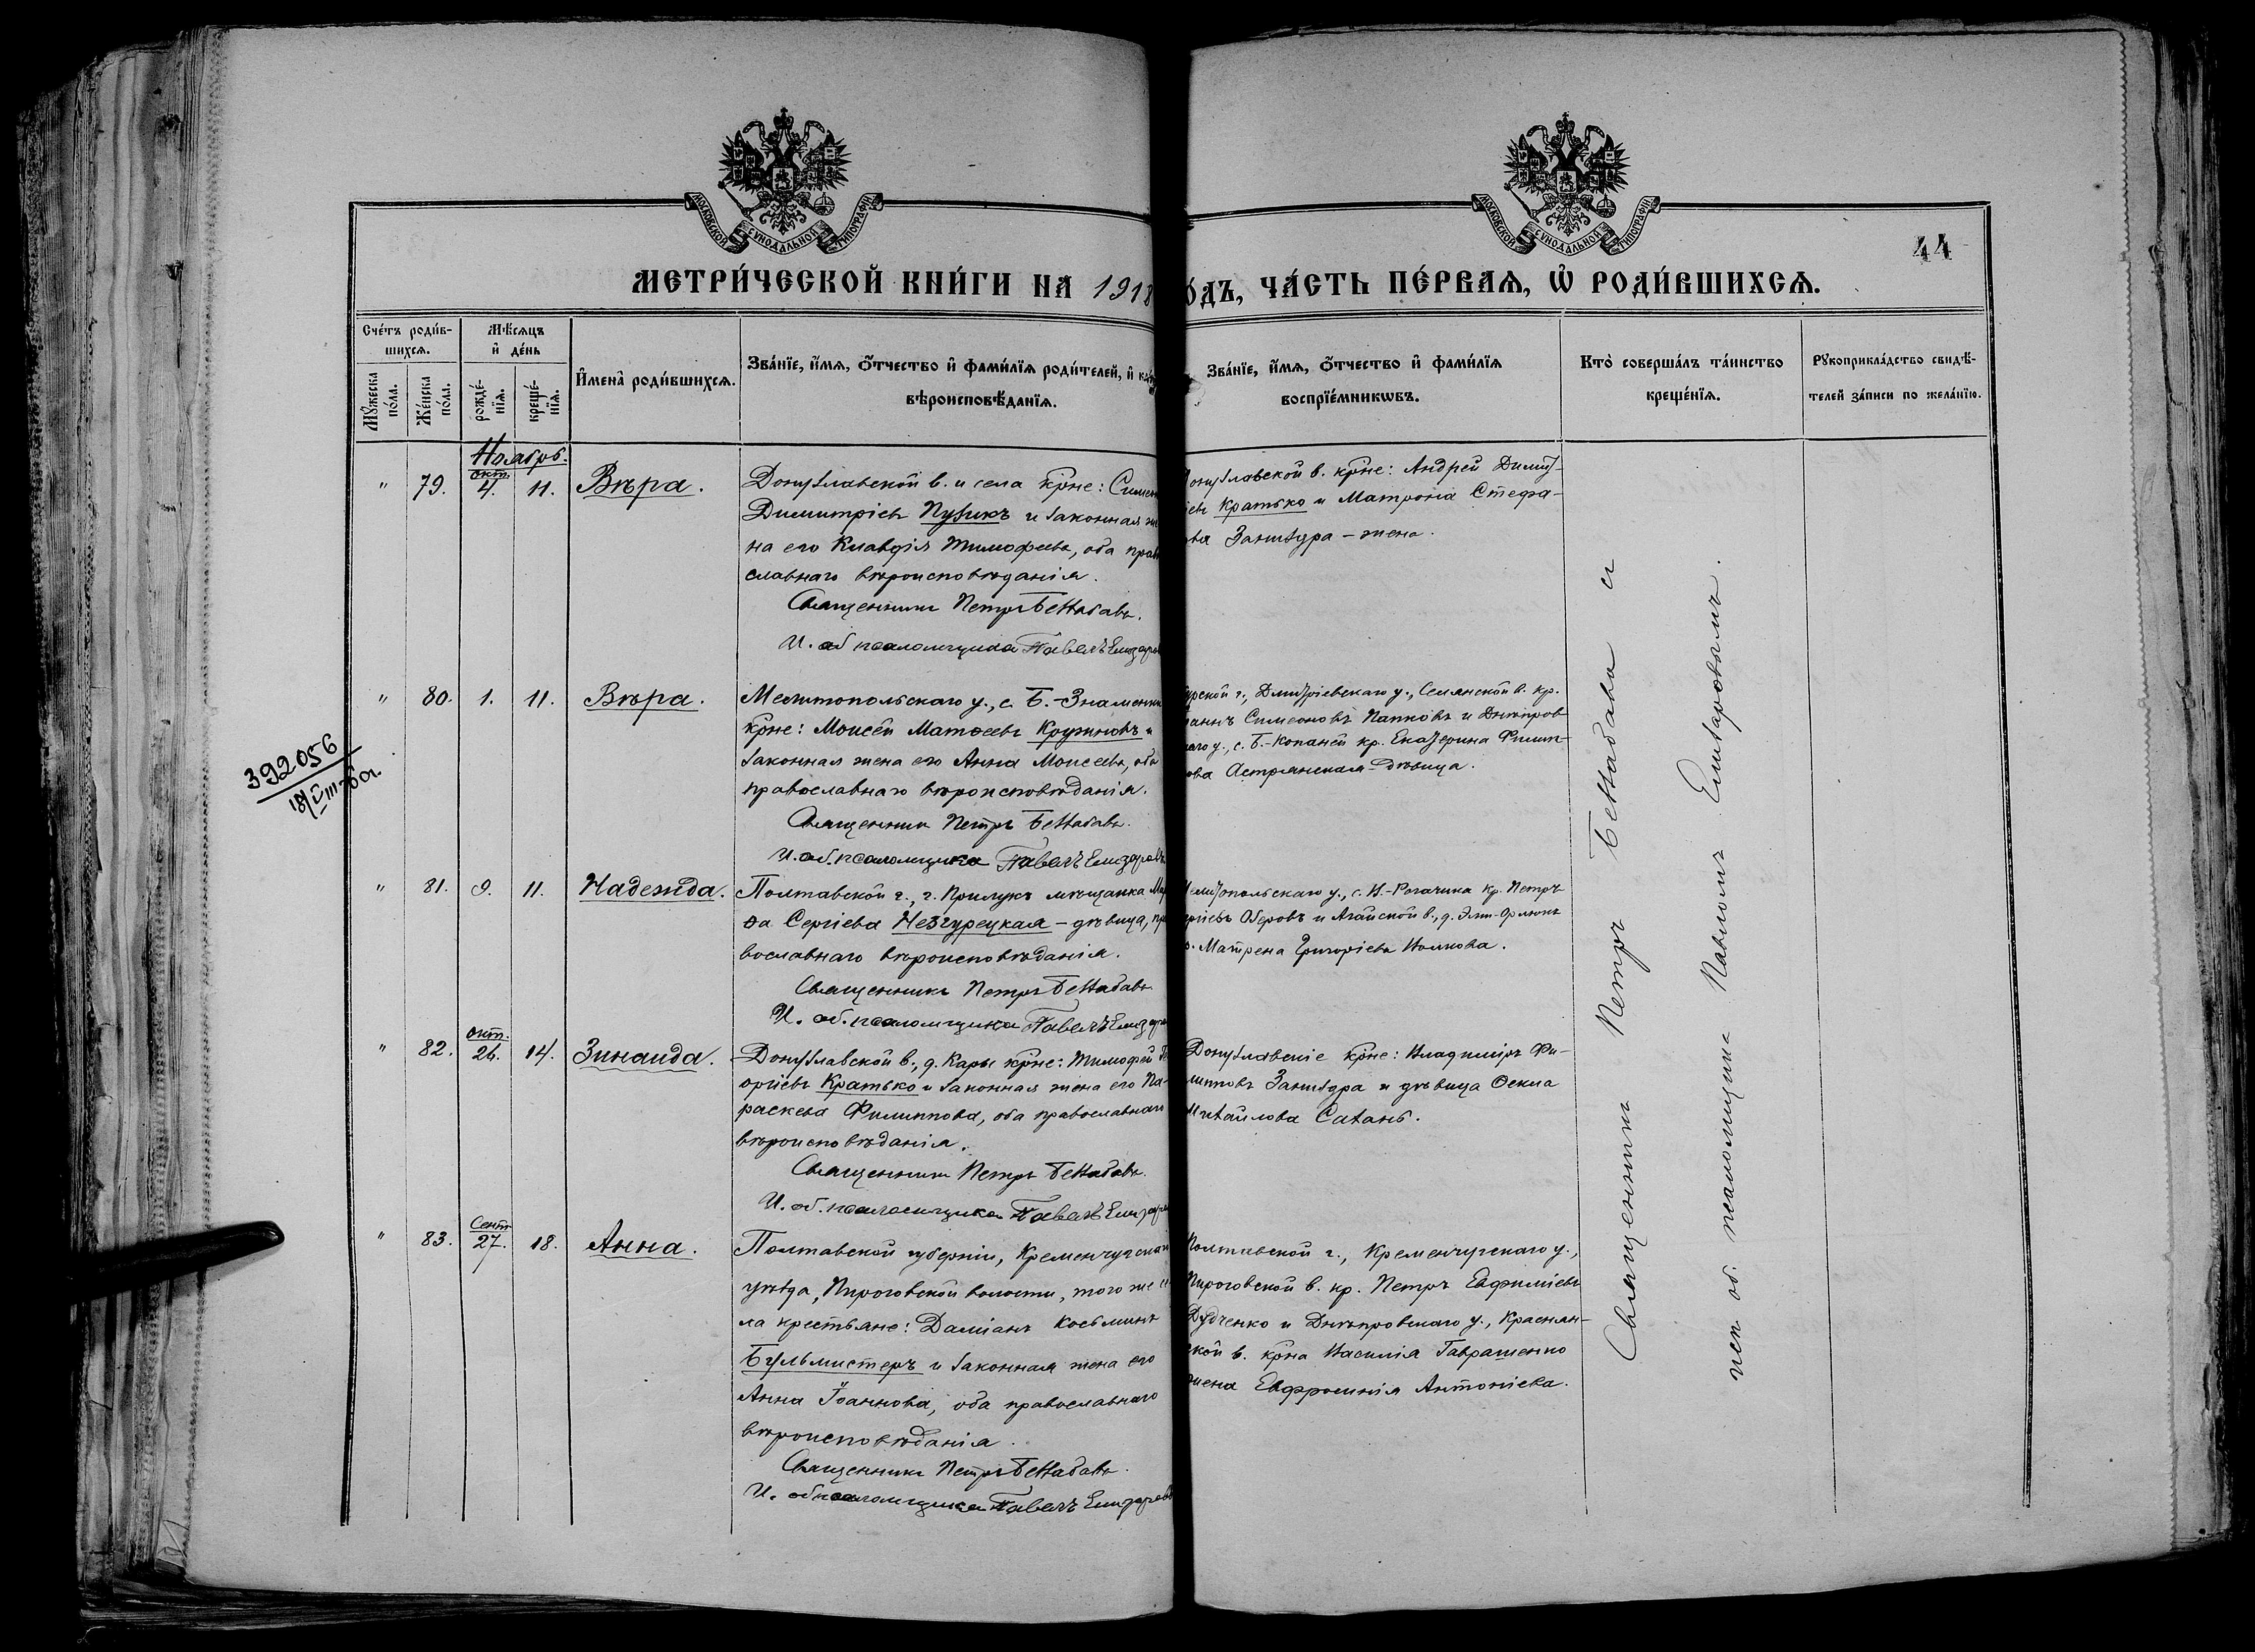 МОСКОВСКОЙ СѴНОДАЛЬНОЙ ТИПОГРАФІИ
МОСКОВСКОЙ СѴНОДАЛЬНОЙ ТИПОГРАФІИ
44
МЕТРИ́ЧЕСКОЙ КНИ́ГИ НА 1918 О́ДЪ, ЧА́СТЬ ПЕ́РВАЯ, Ѡ РОДИ́ВШИХСЯ.
Сче́тъ роди́вшихся.
Му́жеска по́ла.
Же́нска по́ла.
Мѣ́сяцъ и де́нь
рожде́нїя.
креще́нїя.
И҆мена̀ роди́вшихся.
Зва́нїе, и҆́мя, ѻ҆́тчество и҆ фами́лїя роди́телей, и҆
вѣроисповѣ́данїя.
Зва́нїе, и҆́мя, ѻ҆́тчество и҆ фами́лїя
воспрїе́мникѡвъ.
Кто̀ соверша́лъ та́инство
креще́нїя.
Рꙋкоприкла́дство свидѣ́-
телей за́писи по жела́нїю.
Ноябрь.
" 79. окт. 4. 11. Вѣра.
Донузлавской в. и села крне: Симен
Димитріевъ Пузикъ и законная же
на его Клавдія Тимофеева, оба прав
славнаго вѣроисповѣданія.
Священникъ Петръ
И. об псаломщика Павелъ Елизаров
онузлавской в. крне: Андрей Димит-
евъ Кратько и Матрона Стефа-
ова Заниздра - жена.
" 80. 1. 11. Вѣра.
Мелитопольскаго у., с. Б.-Знаменки
крне: Моисей Матѳеевъ Кружновъ и
законная жена его Анна Моисеева, оба
православнаго вѣроисповѣданія.
Священникъ Петръ
И. об. псаломщика Павелъ Елизаровъ
урской г., Дмитріевскаго у., Селянской в. кр.
оаннъ Симеоновъ Папковъ и Днѣпров
каго у., с. Б.-Копаней кр. Екатерина Филип-
ова Астрянская - дѣвица.
392056
" 81. 9. 11. Надежда.
Полтавской г., г. Прилукъ мѣщанка Мар
ѳа Сергіева Незгурецкая - дѣвица, пра
вославнаго вѣроисповѣданія.
Священникъ Петръ
И. об. псаломщика Павелъ Елизаров
Мелитопольскаго у., с. Н.-Рогачика кр. Петръ
Оберовъ и Агайской в., д.
Матрена Григоріева Волкова.
" 82. окт. 26. 14. Зинаида.
Донузлавской в., д. Кары крне: Тимофей Ге
оргіевъ Кратько и законная жена его Па-
раскева Филиппова, оба православнаго
вѣроисповѣданія.
Священникъ Петръ
И. об. псаломщика Павелъ Елизаров
Донузлавскіе крне: Владиміръ Фи-
липповъ Заниздра и дѣвица Ѳекла
Михайлова Сахань.
" 83. Сент. 27. 18. Анна.
Полтавской губерніи, Кременчугскаго
уѣзда, Пироговской волости, того же се
ла крестьяне: Даміанъ Косьминъ
Бульмистеръ и законная жена его
Анна Іоаннова, оба православнаго
вѣроисповѣданія.
Священникъ Петръ
И. об псаломщика Павелъ Елизаровъ
Полтавской г., Кременчугскаго у.,
Пироговской в. кр. Петръ Евфиміевъ
Дудченко и Днѣпровскаго у., Краснян-
ской в. крна Василія Гаврашенко
жена Евфросинія Антоніева.
Священникъ Петръ и
исп. об. псаломщика Павломъ Елизаровымъ.